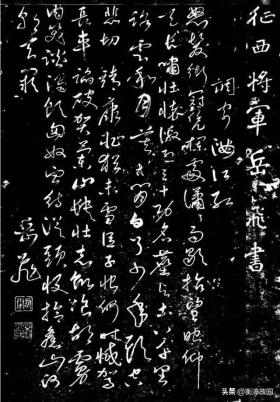 征西將軍岳飛書
調寄滿江紅
怒髮衝冠憑欄處瀟瀟雨歇抬望眼仰
天長嘯壯懷激烈三十功名塵與土八千里
路雲和月莫等閒白了少年頭空
悲切靖康恥猶未雪臣子恨何時滅駕
長車踏破賀蘭山缺壯志飢餐胡虜
肉笑談渴飲匈奴血待從頭收拾舊山河
朝天闕
岳飛
头条 @衡漳故园